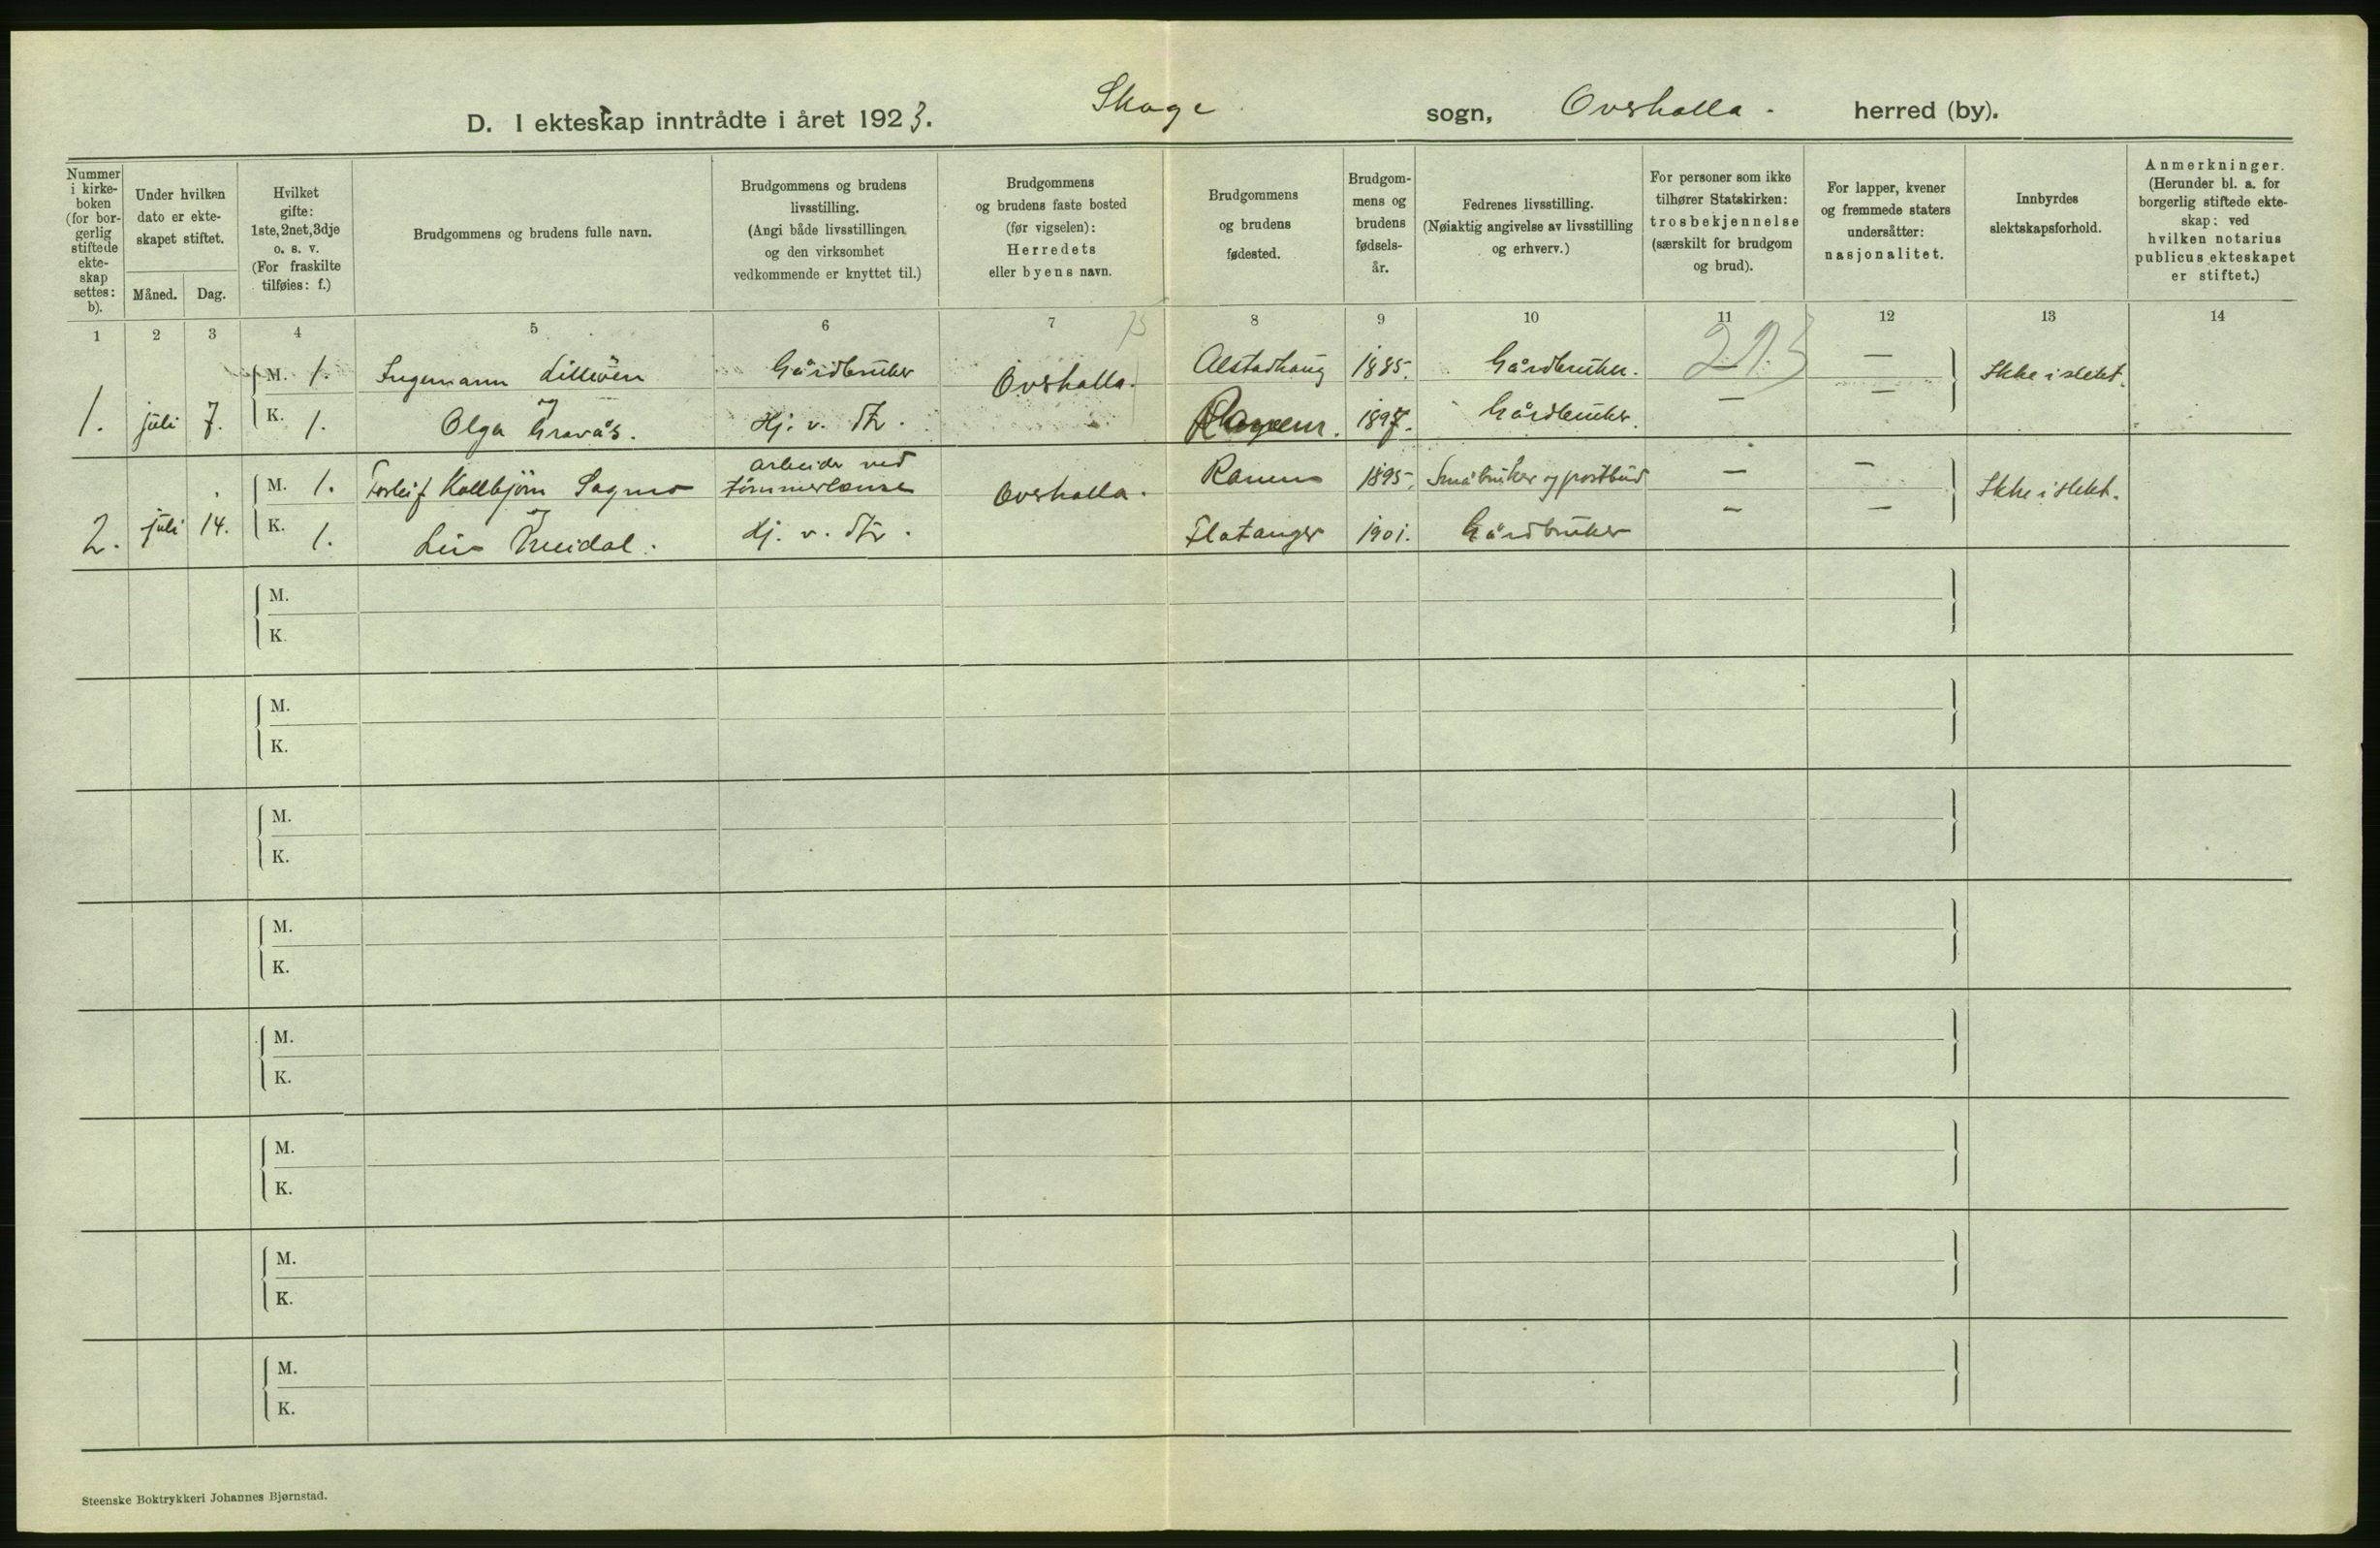 D. I ekteskap inntrådte i året 1923. Skage sogn, Overhalla. herred (by).
Nummer
i kirke-
boken
(for bor-
gerlig
stiftede
ekte-
skap
settes:
b).
Under hvilken
dato er ekte-
skapet stiftet.
Måned. Dag.
Hvilket
gifte:
1ste, 2net, 3dje
o. s. v.
(For fraskilte
tilføies: f.)
Brudgommens og brudens fulle navn.
Brudgommens og brudens
livsstilling.
(Angi både livsstillingen
og den virksomhet
vedkommende er knyttet til.)
Brudgommens
og brudens faste bosted
(før vigselen):
Herredets
eller byens navn.
Brudgommens
og brudens
fødested.
Brudgom-
mens og
brudens
fødsels-
år.
Fedrenes livsstilling.
(Nøiaktig angivelse av livsstilling
og erhverv.)
For personer som ikke
tilhører Statskirken:
trosbekjennelse
(særskilt for brudgom
og brud).
For lapper, kvener
og fremmede staters
undersåtter:
nasjonalitet.
Innbyrdes
slektskapsforhold.
Anmerkninger.
(Herunder bl. a. for
borgerlig stiftede ekte-
skap: ved
hvilken notarius
publicus ekteskapet
er stiftet.)
1 2 3 4 5 6 7 8 9 10 11 12 13 14
M. 1. Ingemann Lilleöen Gårdbruker Overhalla. Alstadhaug 1885. Gårdbruker. — Ikke i slekt.
og
1. juli 7. K. 1. Olga Gravås. Hj. v. Str. Ranem. 1897. Gårdbruker. — —
arbeider ved
M. 1. Torleif Kollbjörn Sagmo tömmerlense Overhalla. Ranem 1895. Småbruker og postbud — — Ikke i slekt.
og
2. juli 14. K. 1. Hj. v. Str. Flatanger 1901. Gårdbruker — —
M.
K.
M.
K.
M.
K.
M.
K.
M.
K.
M.
K.
M.
K.
M.
K.
Steenske Boktrykkeri Johannes Bjørnstad.